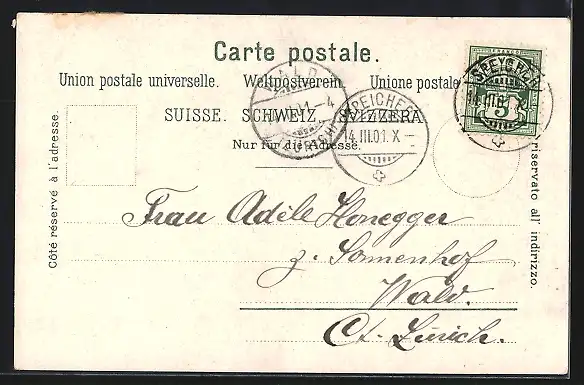 Carte postale.
Union postale universelle. Weltpostverein. Unione postale
SUISSE. SCHWEIZ. SVIZZERA.
Nur für die Adresse.
Côté réservé à l'adresse.
riservato all' indirizzo.
WALD
SPEICHER
14.III.01.X
SPEICHER
14.III.01
FRANCO
5
Frau Adèle Honegger
z. Sonnenhof
Wald.
Ct. Zürich.